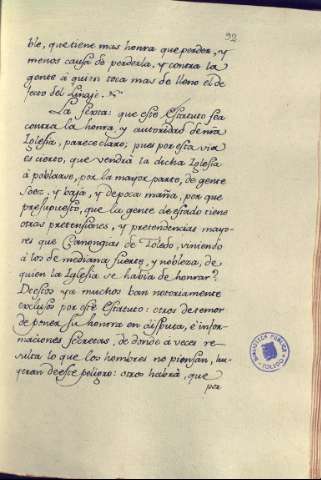 92
ble, que tiene mas honra que perder, y
menos causa de perderla, y contra la
gente á quien toca mas de lleno el de
fecto del linaje.
La sexta: que este Estatuto sea
contra la honra, y autoridad de nra
Iglesia, parece claro; pues por esta via
es cierto, que vendrá la dicha Iglesia
á poblarse, por la mayor parte, de gente
soez, y baja, y de poca maña, por que
presupuesto, que la gente de estado tiene
otras pretensiones, y pretendencias mayo-
res que Canongias de Toledo, viniendo
á los de mediana suerte, y nobleza, de
quien la Iglesia se habia de honrar?
Destos ya muchos ban notoriamente
exclusos por este Estatuto: otros de temor
de poner su honrra en disputa, é infor-
maciones secretas, de donde á veces re-
sulta lo que los hombres no piensan, hui-
rán de este peligro: otros habrá, que
por
BIBLIOTECA PUBLICA
TOLEDO